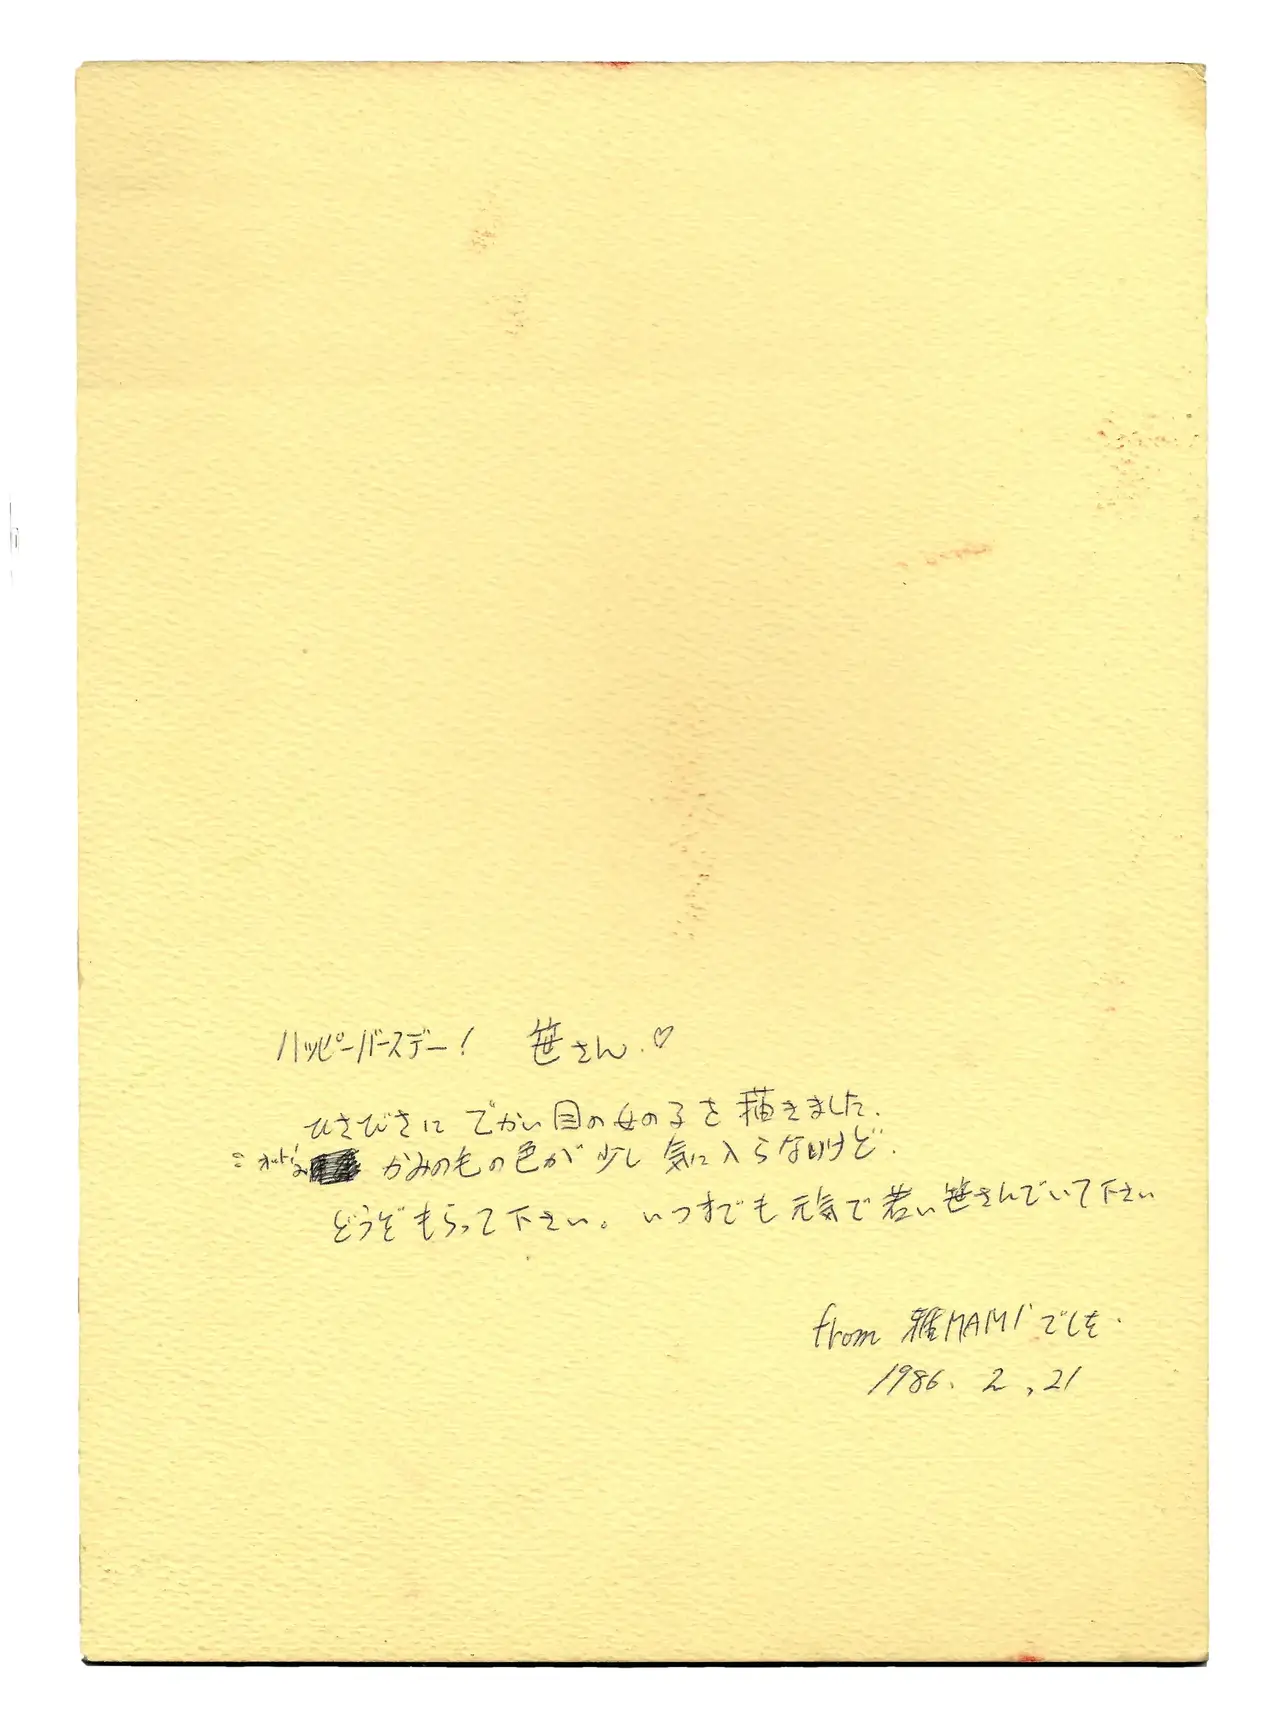 ハッピーバースデー! 笹さん.♡
ひさびさに でかい目の女の子を 描きました.
かみのもの色が 少し 気に入らないけど.
どうぞ もらって下さい。いつまでも 元気で若い笹さんでいて下さい
from 雅MAMI でした.
1986. 2, 21